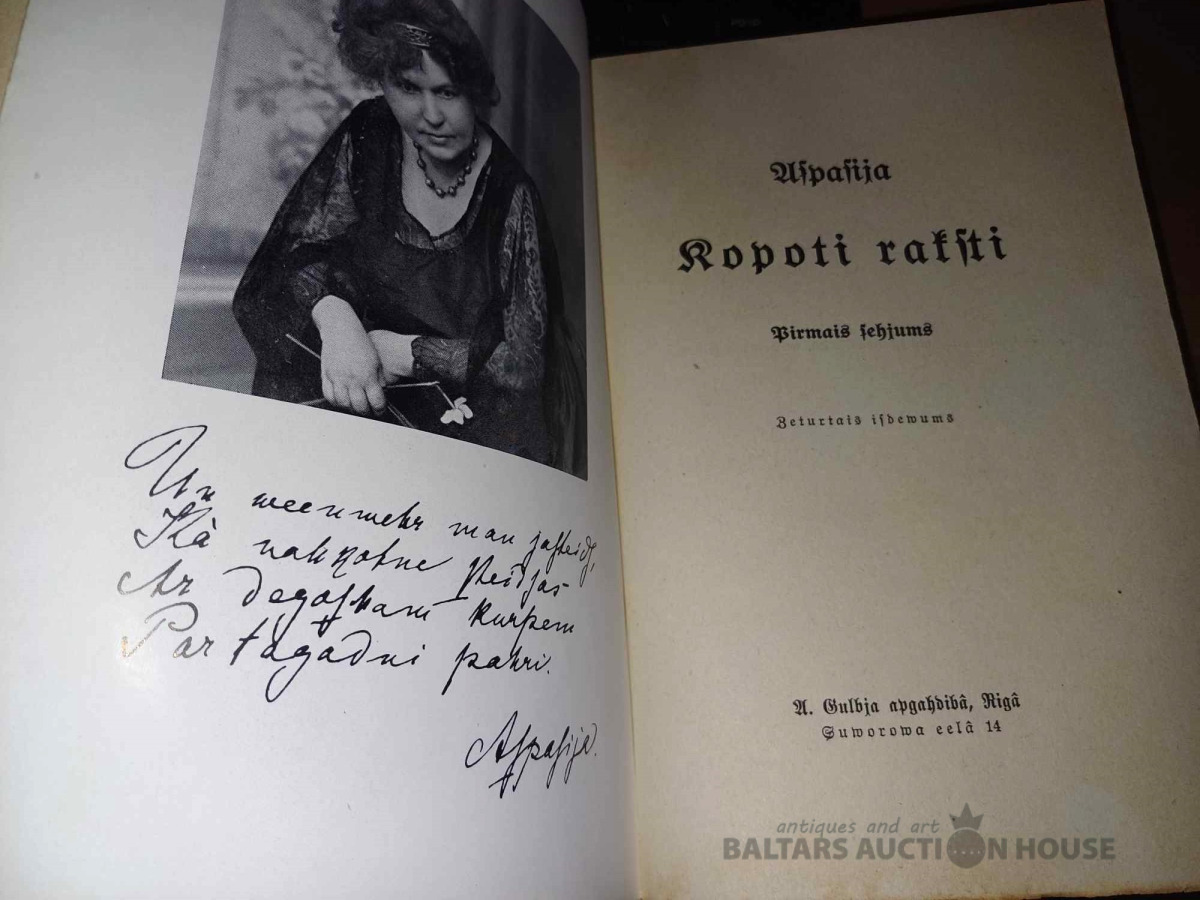 Un weenmehr man jasteids,
Kâ nahkotne steidsas
Ar degoscham kurpem
Par tagadni pahri.
Aſpaſija.
Aſpaſija
Kopoti rakſti
Pirmais ſehjums
Zeturtais iſdewums
A. Gulbja apgahdibâ, Rigâ
Suworowa eelâ 14
antiques and art
BALTARS AUCTION HOUSE